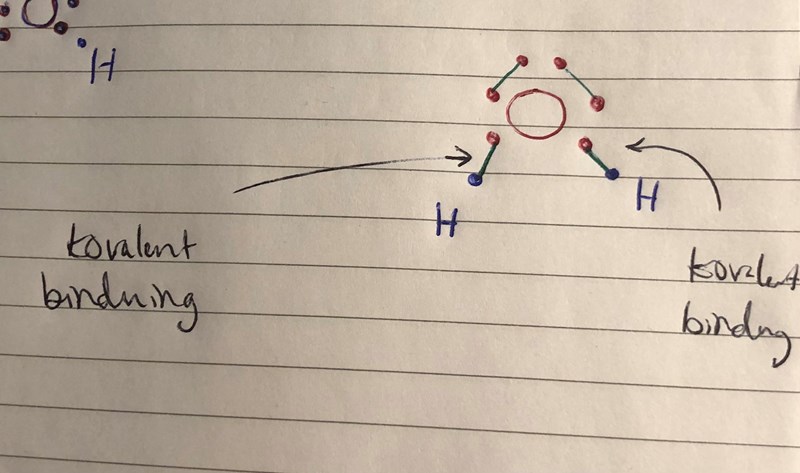 H
H
H
kovalent
bindning
kovalent
bindng